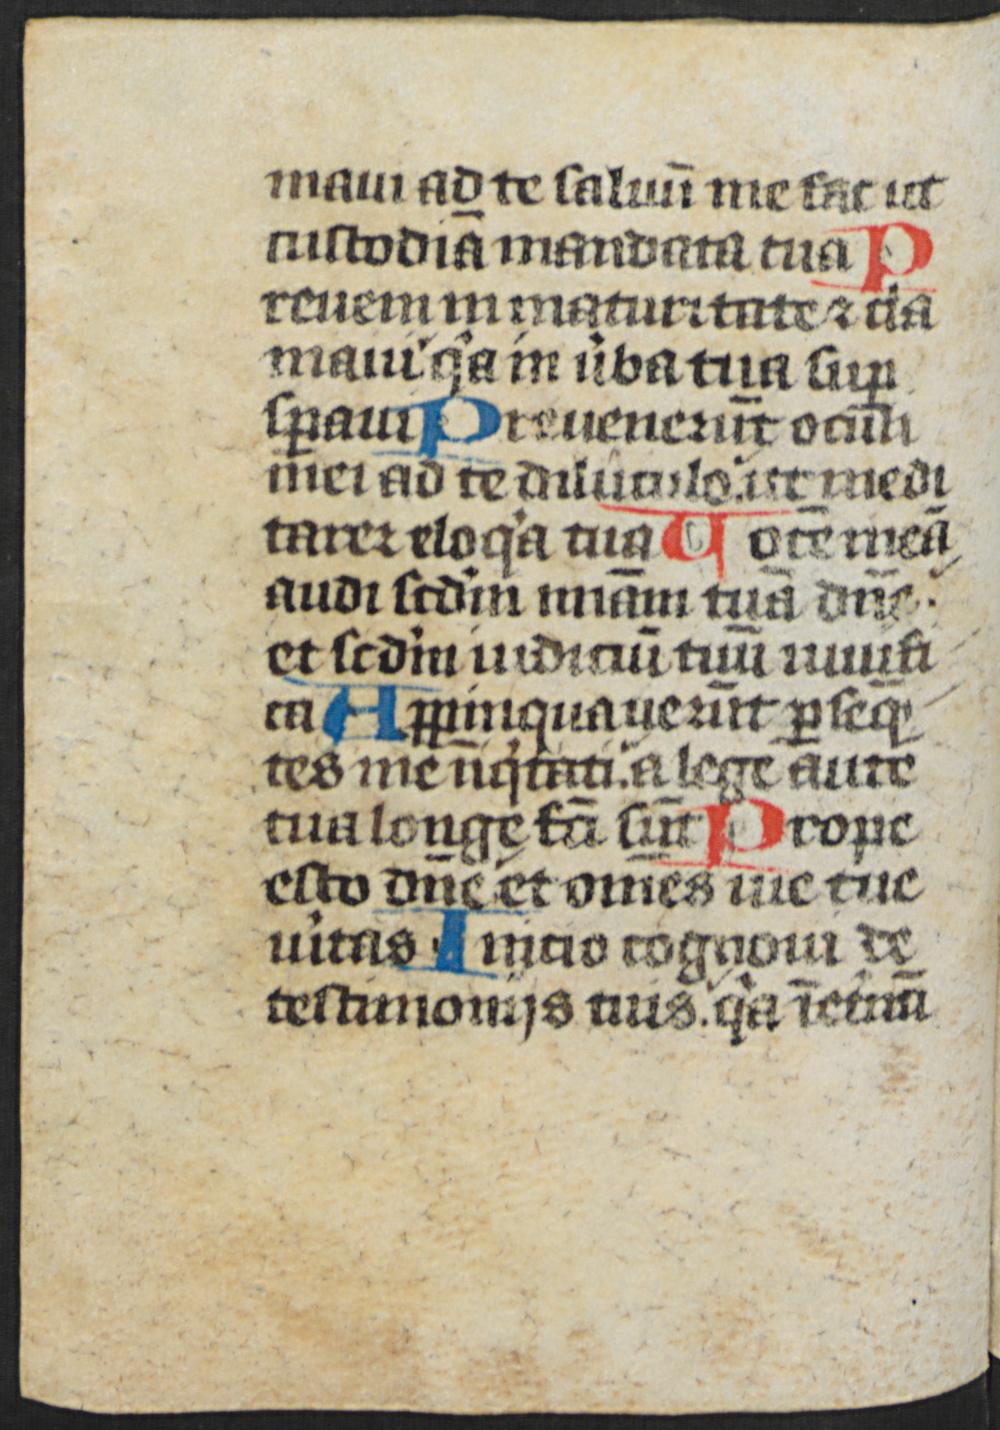 maui ad te saluū me fac ut
custodiā mandata tua P
reueni in maturitate ⁊ cla
maui q̇a in ũba tua sup̱
sp̱aui Preuenerūt oculi
mei ad te diluculo. ut medi
tarer eloq̇a tua U ocē meā
audi scd̓m mīam tuā dñe.
et scd̓m iudiciū tuū uiuifi
ca Appinquauerūt p̱seq̄
tes me iniq̇tati. a lege autē
tua longe fc̄i sūt Prope
esto dñe et om̄es uie tue
uitas Initio cognoui de
testimonijs tuis. q̇a ī etnū